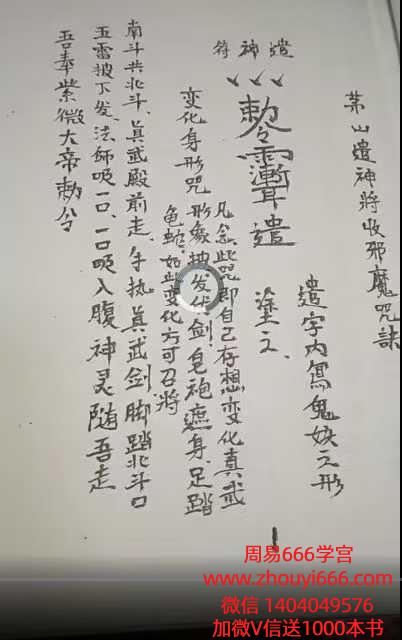 茅山遣神將收邪魔咒訣
遣字内寫鬼妖之形
遣神符
敕令
遣
塗之、
凡念此咒即自己存想变化真武
形象披发仗剑、皂袍遮身、足踏
龟蛇、如此变化方可召將
变化身形咒
南斗共北斗、真武殿前走、手执真武剑脚踏北斗口
五雷披下发、法師吸一口、一口吸入腹神灵随吾走
吾奉紫微大帝勅令
1
周易666学宫
www.zhouyi666.com
微信 1404049576
加微V信送1000本书